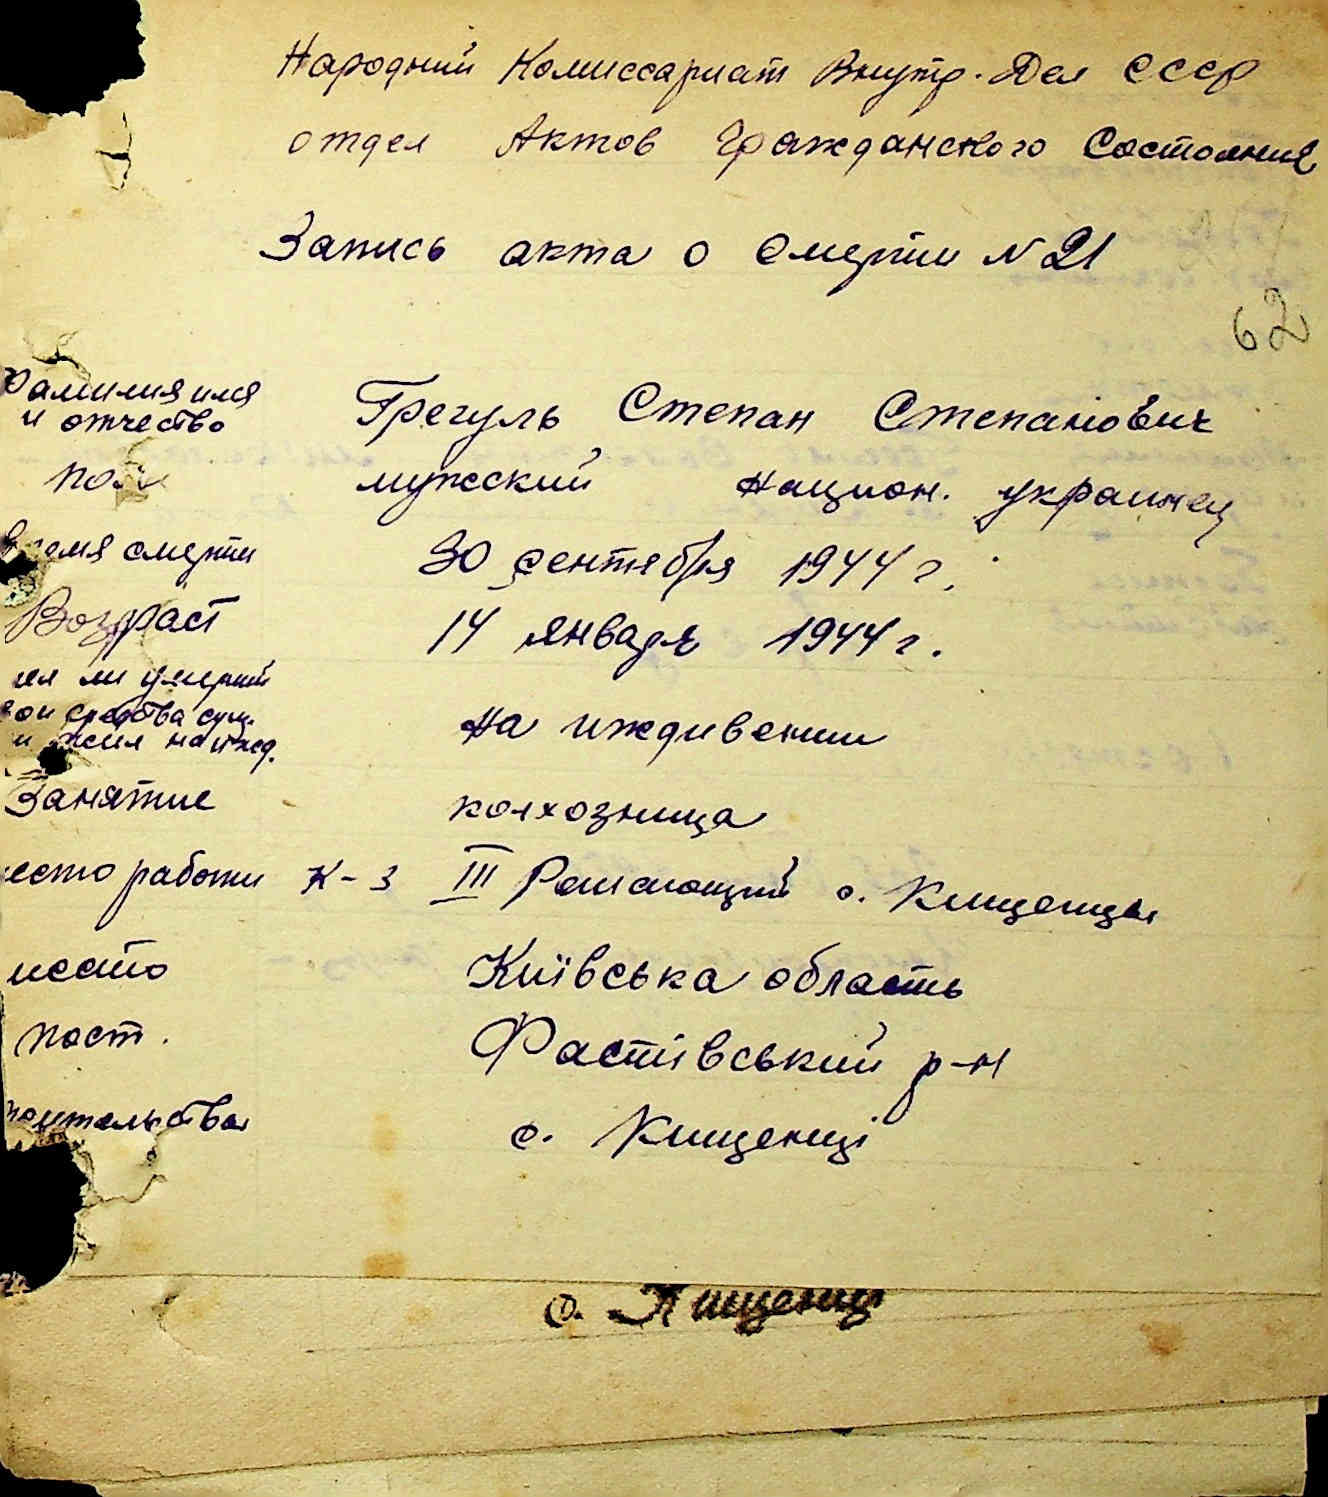 Народний Комиссариат Внутр. Дел СССР
отдел Актов Гражданского Состояния
Запись акта о смерти N 21
62
Фамилия имя
и отчество Грегуль Степан Степанович
пол мужский национ. украинец
Время смерти 30 сентября 1944 г.
Возраст 14 января 1944 г.
ел ли умерший
вои средства сущ.
и жил на ижд. на иждивении
Занятие колхозница
место работи к-з III Решающий с. Кищенцы
место Київська область
пост. Фастівський р-н
жительства с. Кищенці
с. Кищенці